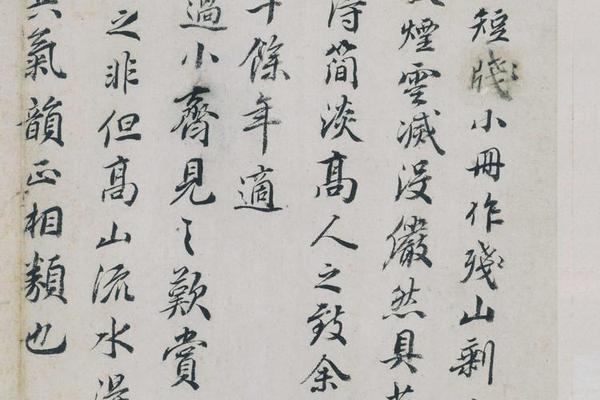 短牋小冊作殘山剩
煙雲滅沒儼然具
得簡淡高人之致余
十餘年適
過小齋見之歎賞
之非但高山流水
其氣韻正相類也